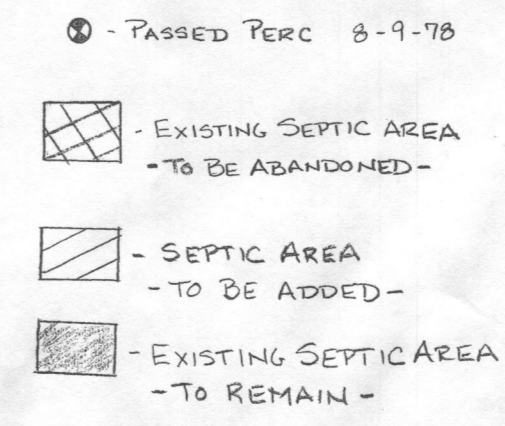 - PASSED PERC 8-9-78
- EXISTING SEPTIC AREA
- TO BE ABANDONED -
- SEPTIC AREA
- TO BE ADDED -
- EXISTING SEPTIC AREA
- TO REMAIN -